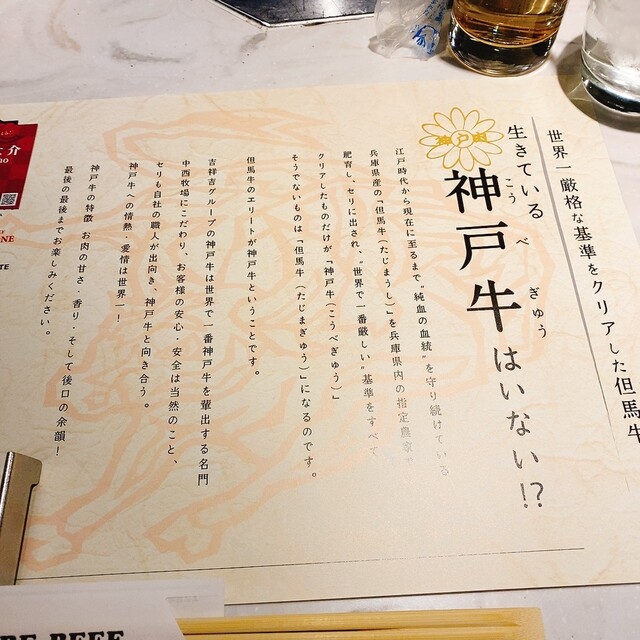 世界一厳格な基準をクリアした但馬牛
生きている
神戸牛はいない!?
こう べ ぎゅう
神戸肉
江戸時代から現在に至るまで"純血の血統"を守り続けている
兵庫県産の「但馬牛(たじまうし)」を兵庫県内の指定農家が
肥育し、セリに出され、"世界で一番厳しい"基準をすべて
クリアしたものだけが「神戸牛(こうべぎゅう)」
そうでないものは「但馬牛(たじまぎゅう)」になるのです。
但馬牛のエリートが神戸牛ということです。
吉祥吉グループの神戸牛は世界で一番神戸牛を輩出する名門
中西牧場にこだわり、お客様の安心・安全は当然のこと、
セリも自社の職人が出向き、神戸牛と向き合う。
神戸牛への情熱、愛情は世界一!
神戸牛の特徴 お肉の甘さ・香り・そして後口の余韻!
最後の最後までお楽しみください。
介
BEEF